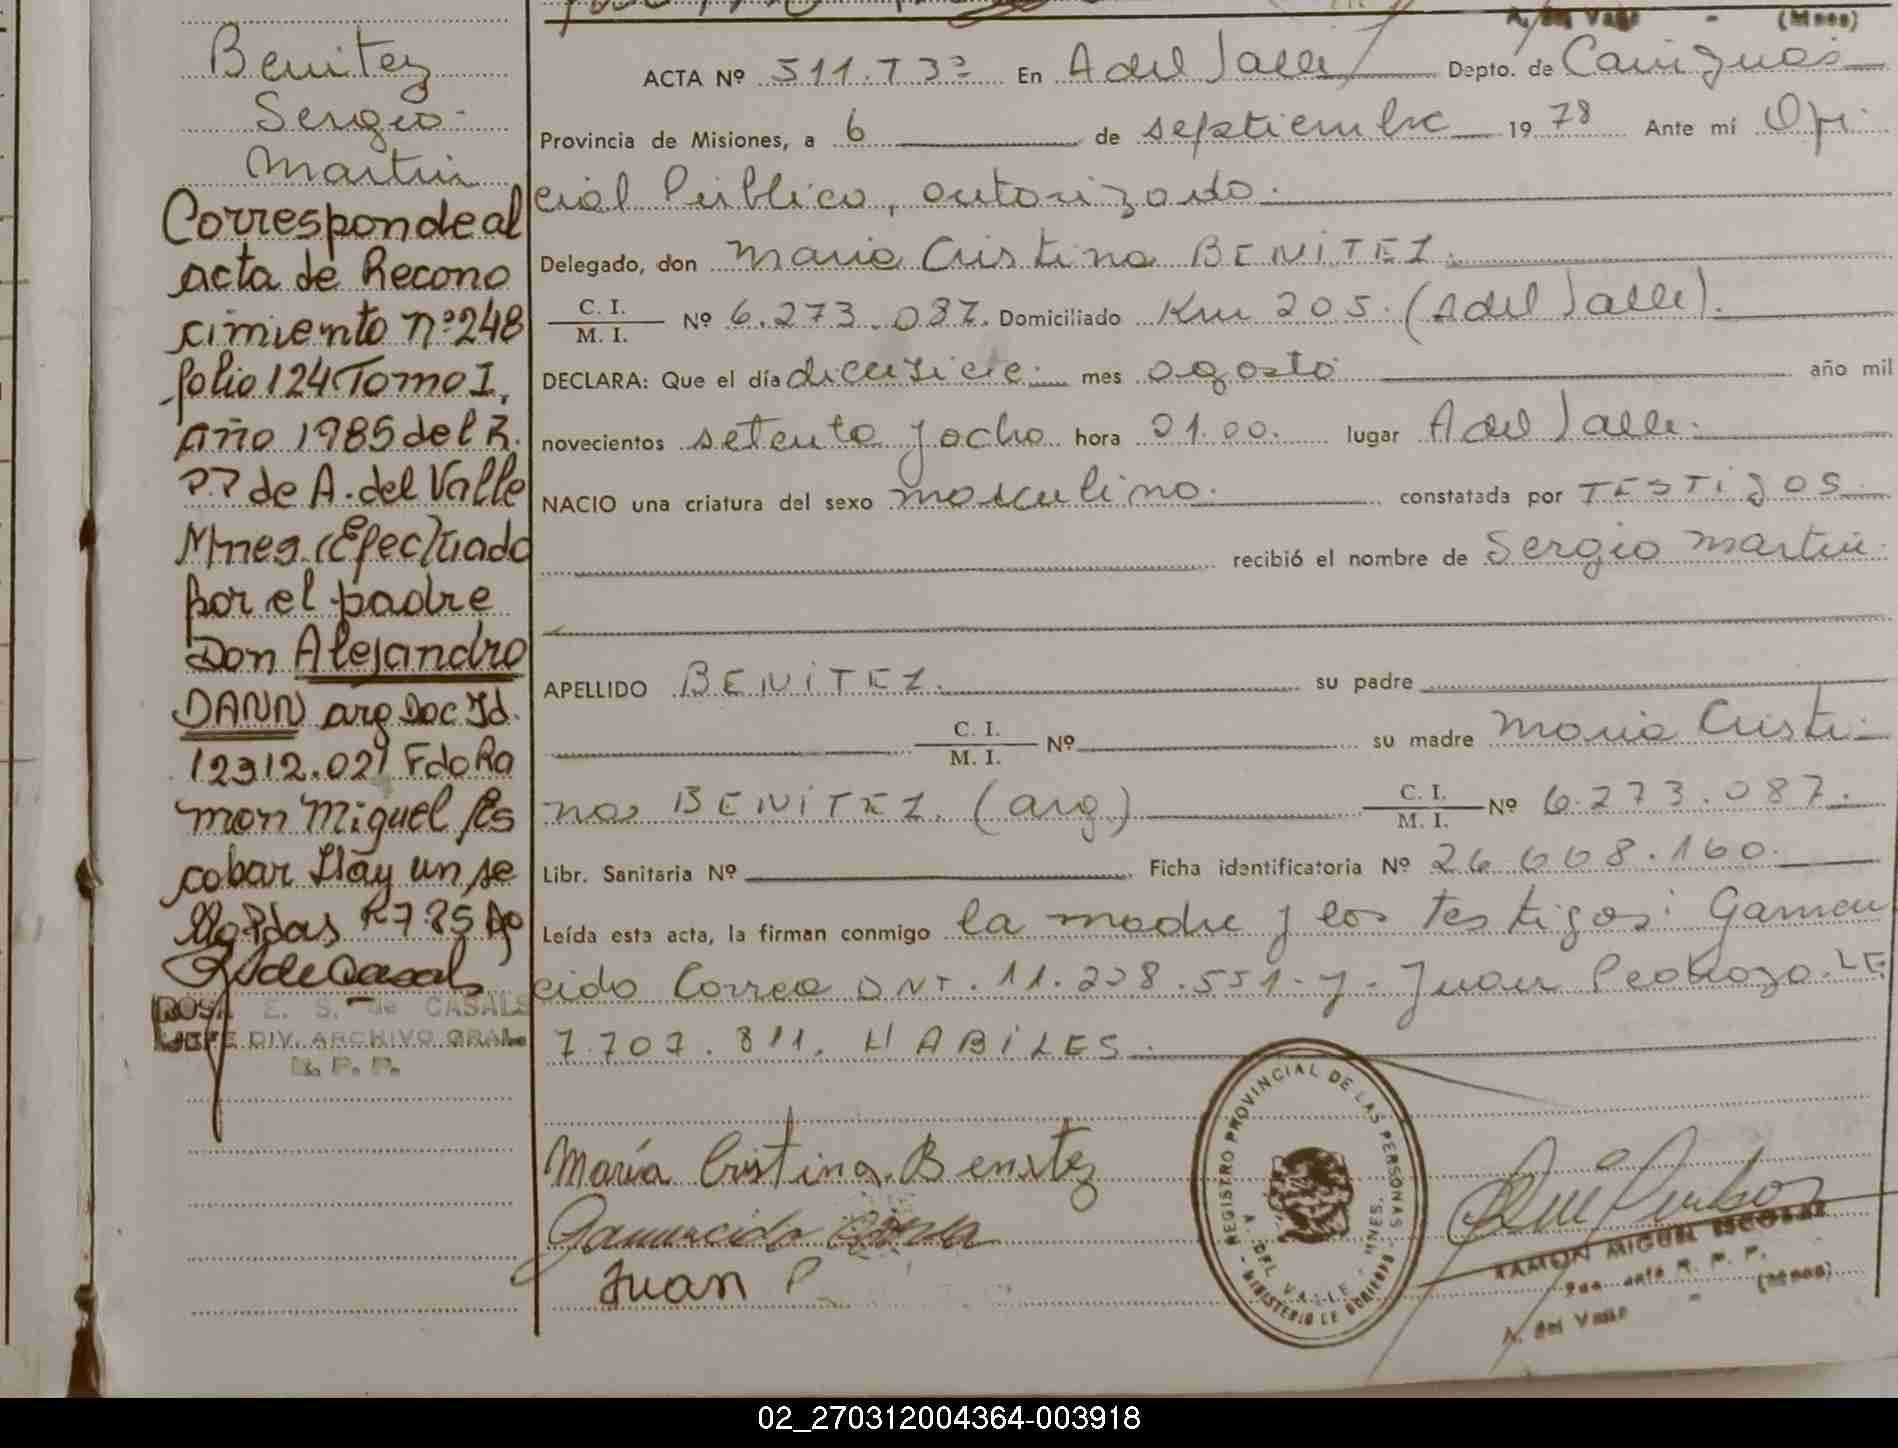 A. del Valle - (Mnes)
Benitez
Sergio
Martin
Corresponde al
acta de Recono
cimiento nº 248
folio 124 Tomo I,
Año 1985 del R.
P.P de A. del Valle
Mnes. (Efectuado
por el padre
Don Alejandro
DANN arg Doc Id.
12312.021 Fdo Ra
mon Miguel Es
cobar Hay un se
llo Pdas 7 85
R. de Casals
ROSA E. S. de CASALS
JEFE DIV. ARCHIVO GRAL.
R. P. P.
ACTA Nº 511.T3º En A del Valle Depto. de Cainguas
Provincia de Misiones, a 6 de septiembre 19 78 Ante mí Ofi
cial Público, autorizado.
Delegado, don Maria Cristina BENITEZ.
C. I.
M. I. Nº 6.273.087. Domiciliado Km 205. (A del Valle).
DECLARA: Que el día diecisiete. mes agosto año mil
novecientos setenta y ocho hora 01.00. lugar A del Valle.
NACIO una criatura del sexo masculino. constatada por TESTigos
recibió el nombre de Sergio Martin
APELLIDO BENITEZ. su padre
C. I.
M. I. Nº su madre Maria Cristi
na BENITEZ. (arg) C. I.
M. I. Nº 6.273.087.
Libr. Sanitaria Nº Ficha identificatoria Nº 26.608.160.
Leída esta acta, la firman conmigo la madre y los testigos: Gamer
cido Correa DNI. 11.228.551. y. Juan Pedrozo. LE
7.707.811. HABILES.
María Cristina Benitez
Juan P
REGISTRO PROVINCIAL DE LAS PERSONAS
A. DEL VALLE - MNES.
- MINISTERIO DE GOBIERNO -
RAMON MIGUEL ESCOBAR
R. P. P.
A. del Valle - (Mnes)
02_270312004364-003918